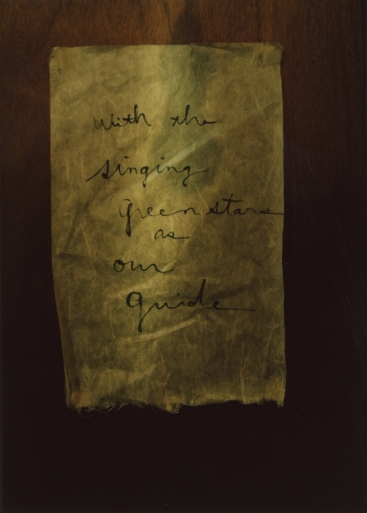 with the
singing
green stars
as
our
guide